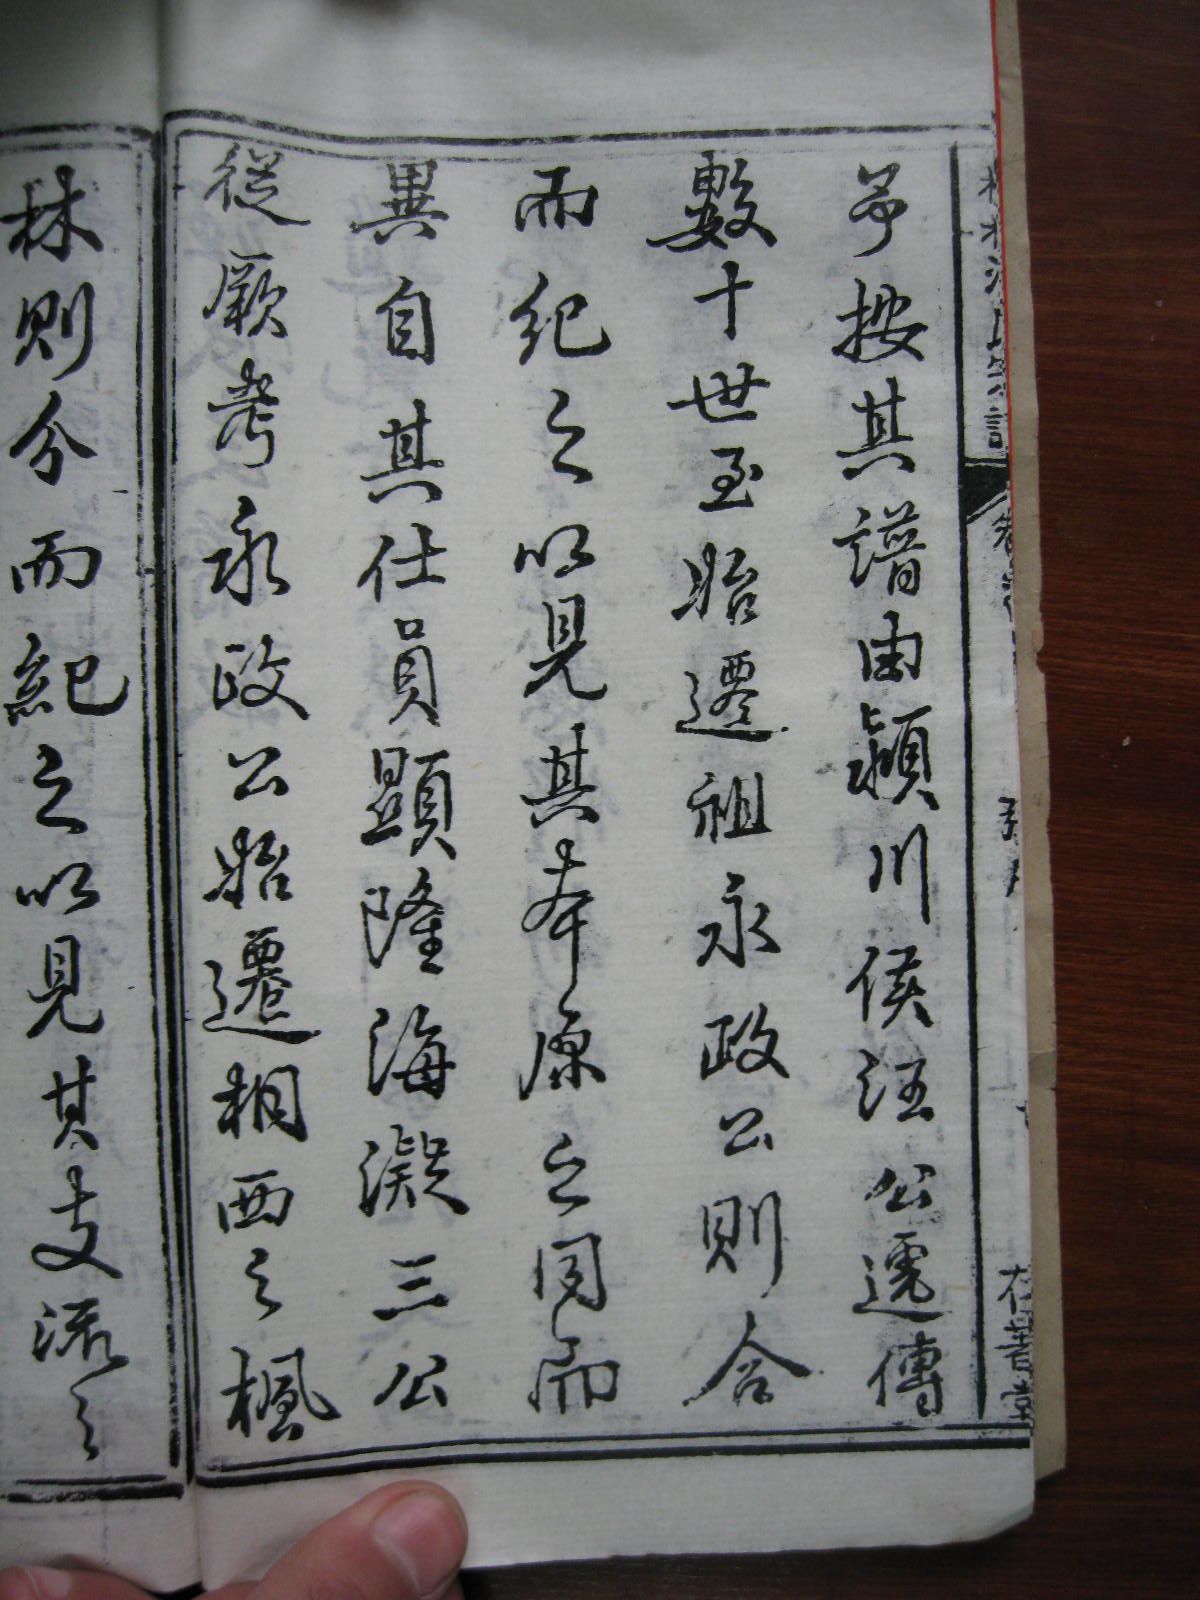 予按其譜由潁川侯汪公遞傳
數十世至始遷祖永政公則合
而紀之以見其本原之同而
異自其仕員顯隆海凝三公
從厥考永政公始遷桐西之楓
林則分而紀之以見其支流之